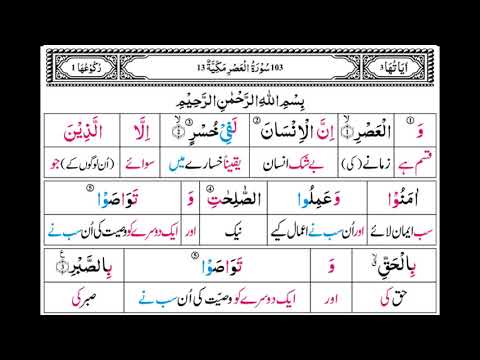 اٰيَاتُهَا 3 103 سُوْرَةُ الْعَصْرِ مَكِّيَّةٌ 13 رُكُوْعُهَا 1
بِسْمِ اللهِ الرَّحْمٰنِ الرَّحِيْمِ
وَ الْعَصْرِ ۙ﴿۱﴾ اِنَّ الْاِنْسَانَ ② لَفِيْ خُسْرٍ ③ ۙ﴿۲﴾ اِلَّا الَّذِيْنَ
قسم ہے زمانے (کی) بے شک انسان یقیناً خسارے میں سوائے (اُن لوگوں کے) جو
اٰمَنُوْا وَعَمِلُوا الصّٰلِحٰتِ ④ وَ تَوَاصَوْا ⑤
سب ایمان لائے اور اُن سب نے اعمال کیے نیک اور ایک دوسرے کو وصیت کی اُن سب نے
بِالْحَقِّ ۙ۬ وَ تَوَاصَوْا ⑤ بِالصَّبْرِ ﴿۳﴾
حق کی اور ایک دوسرے کو وصیّت کی اُن سب نے صبر کی